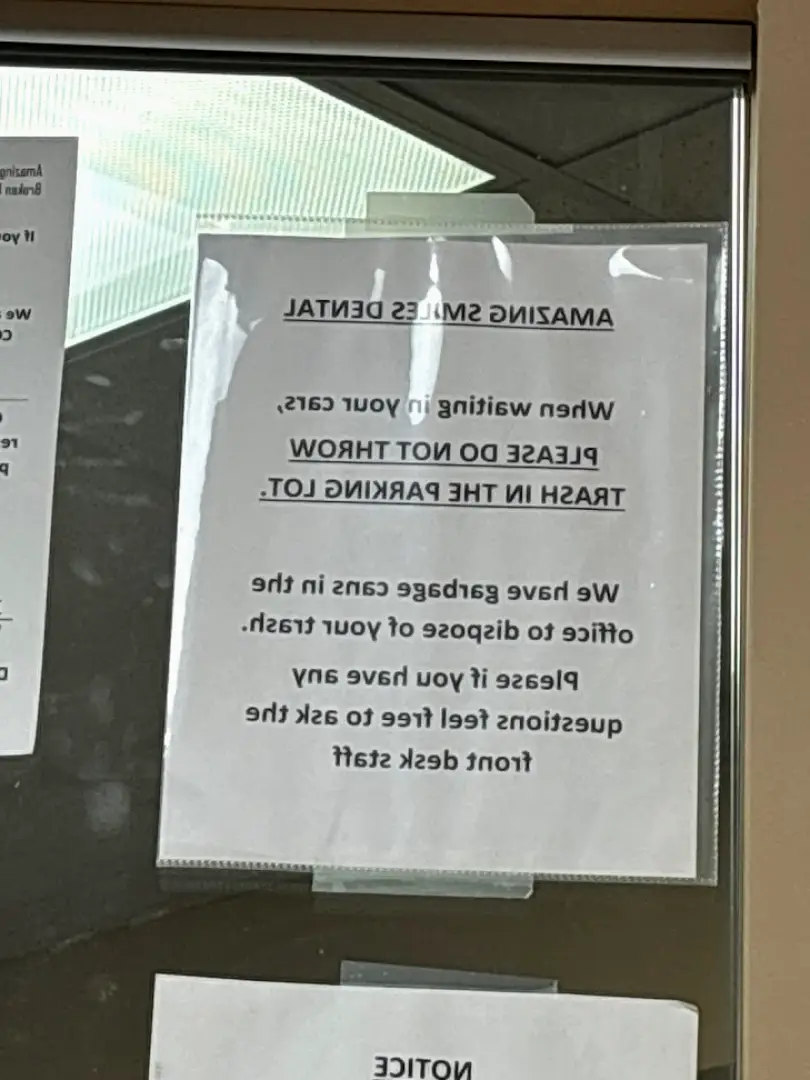 Amazing
Broken
If you
We
AMAZING SMILES DENTAL
When waiting in your cars,
PLEASE DO NOT THROW
TRASH IN THE PARKING LOT.
We have garbage cans in the
office to dispose of your trash.
Please if you have any
questions feel free to ask the
front desk staff
NOTICE